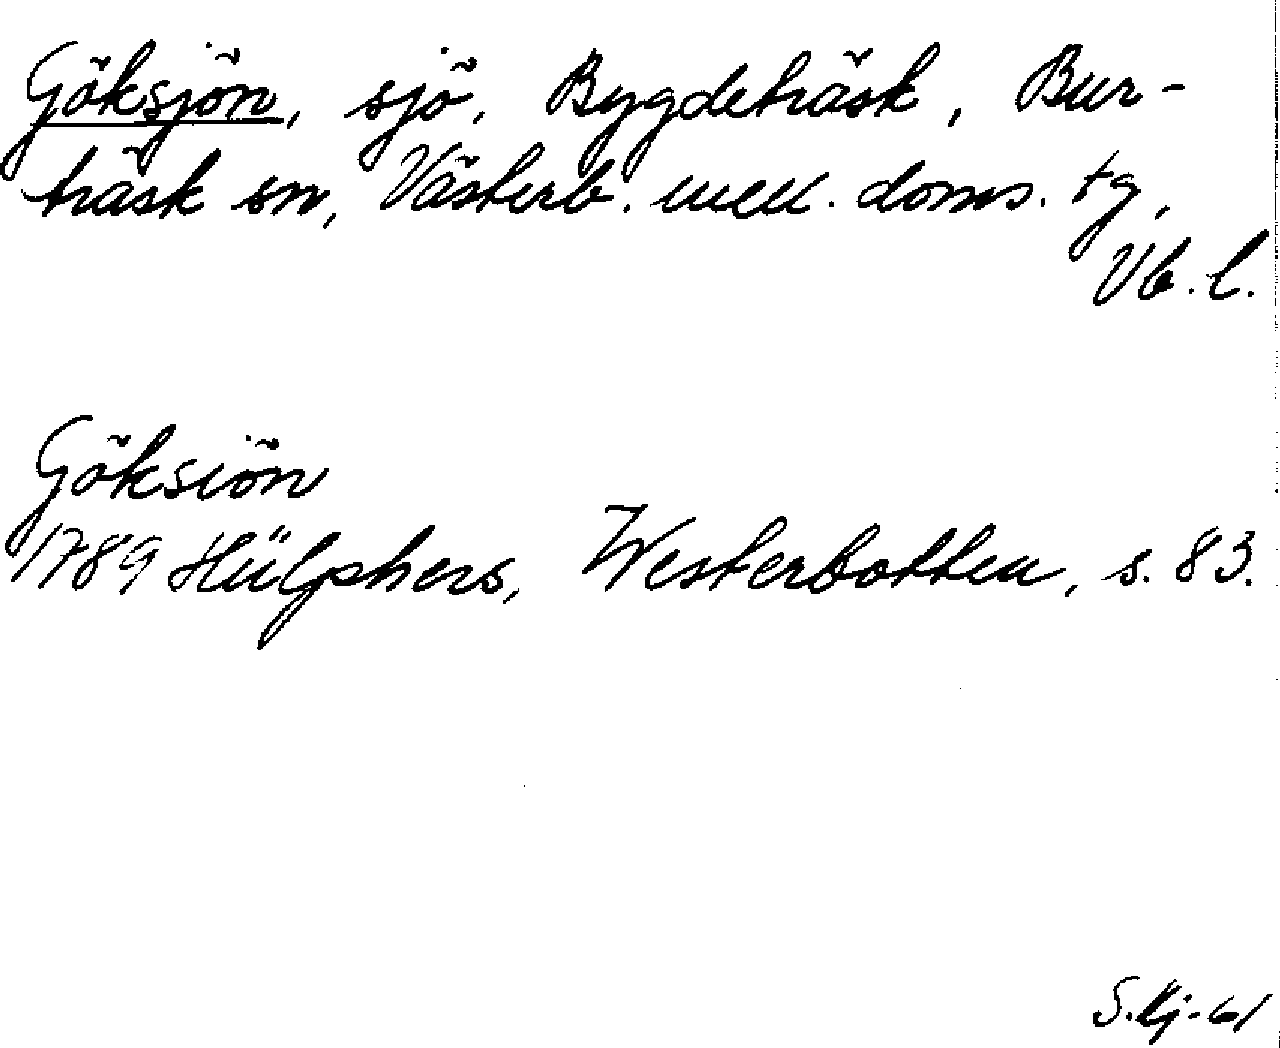 Göksjön, sjö, Bygdeträsk, Bur-
träsk sn, Västerb. mell. doms. tg,
Vb. l.
Göksiön
1789 Hülphers, Westerbotten, s. 83.
S. Lj-61